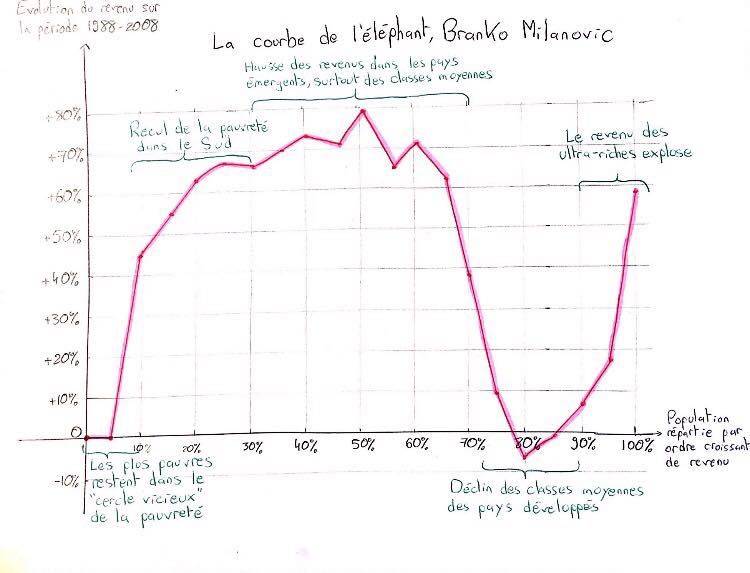 Evolution du revenu sur
la période 1988-2008
La courbe de l'éléphant, Branko Milanovic
Hausse des revenus dans les pays
émergents, surtout des classes moyennes
Recul de la pauvreté
dans le Sud
Le revenu des
ultra-riches explose
+80%
+70%
+60%
+50%
+40%
+30%
+20%
+10%
0
-10%
1 10% 20% 30% 40% 50% 60% 70% 80% 90% 100%
Population
répartie par
ordre croissant
de revenu
Les plus pauvres
restent dans le
"cercle vicieux"
de la pauvreté
Déclin des classes moyennes
des pays développés